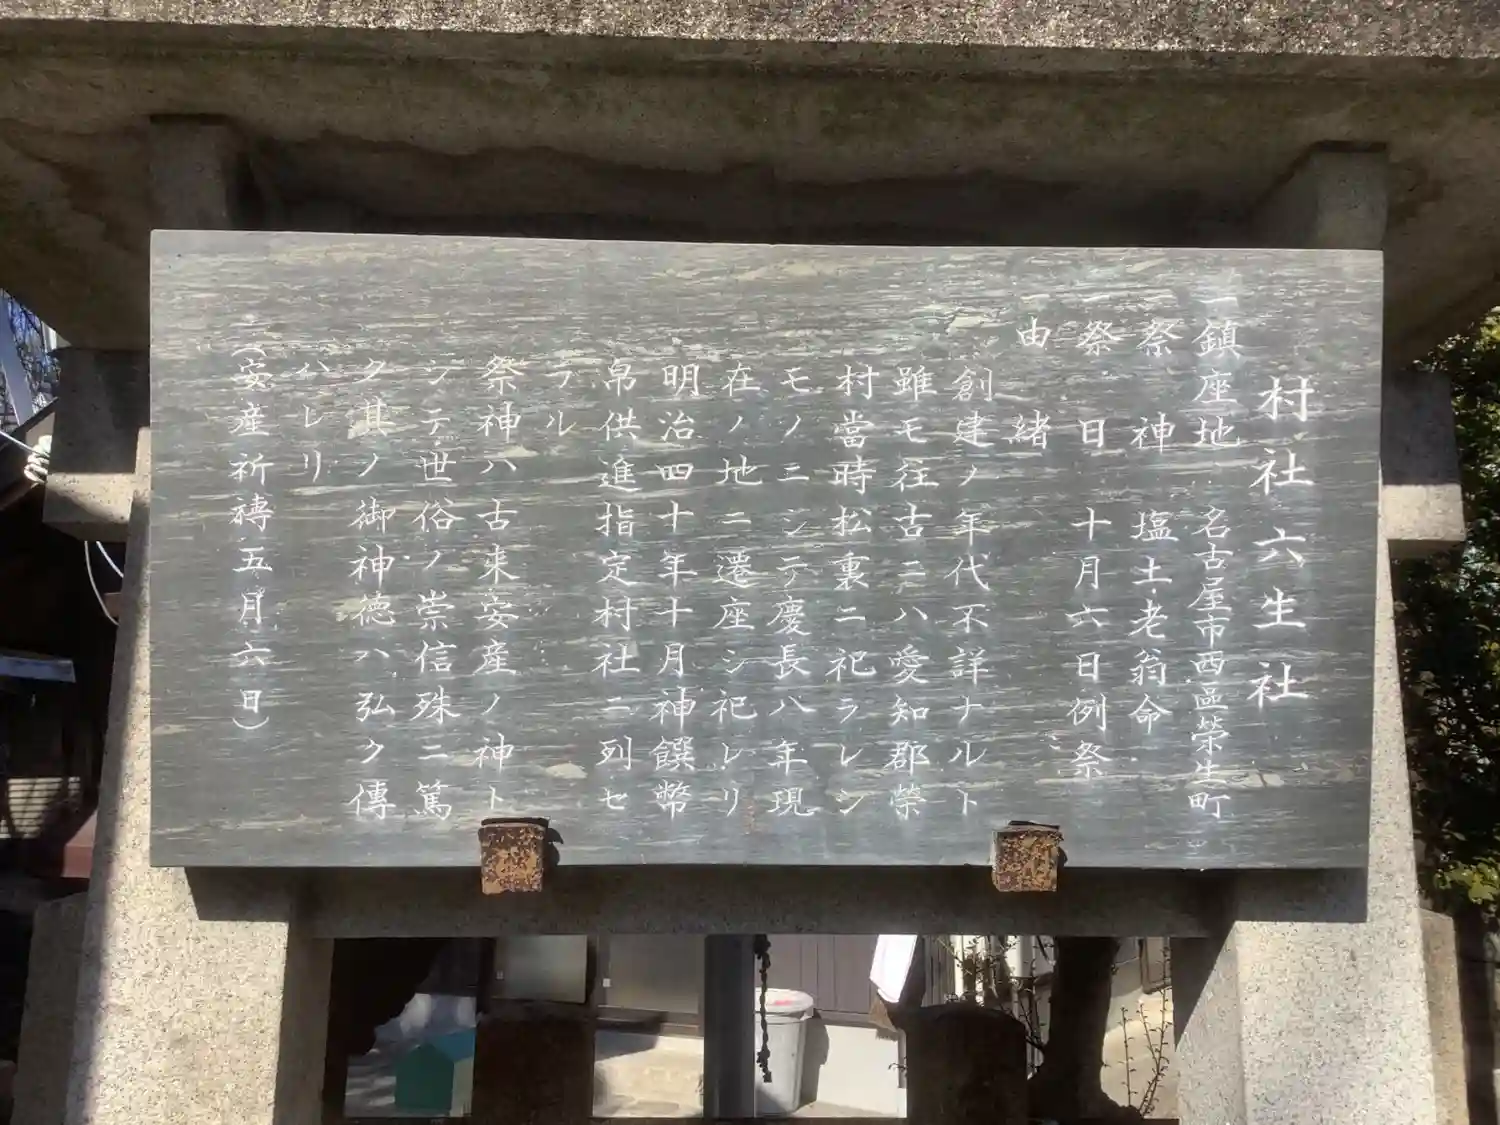 村社六生社
一鎮座地 名古屋市西區榮生町
祭神 塩土老翁命
祭日 十月六日例祭
由緒
創建ノ年代不詳ナルト
雖モ往古ニハ愛知郡榮
村當時松裏ニ祀ラレシ
モノニシテ慶長八年現
在ノ地ニ遷座シ祀レリ
明治四十年十月神饌幣
帛供進指定村社ニ列セ
ラル
祭神ハ古来安産ノ神ト
シテ世俗ノ崇信殊ニ篤
ク其ノ御神徳ハ弘ク傳
ハレリ
（安産祈禱五月六日）